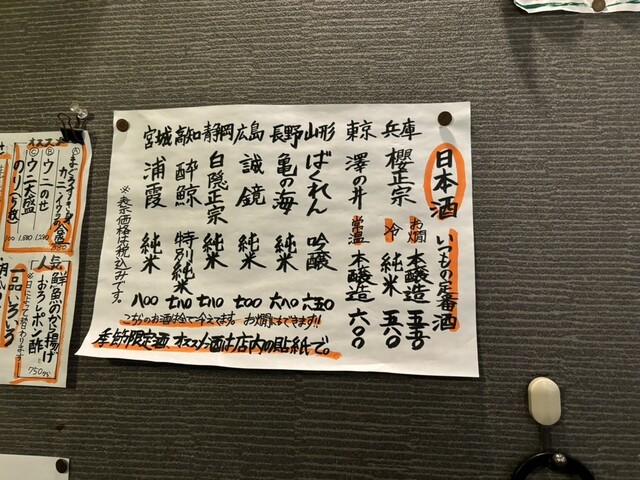 日本酒 いつもの定番酒
兵庫 櫻正宗 お燗 本醸造 五五〇
冷 純米 五六〇
東京 澤の井 常温 本醸造 六〇〇
山形 ばくれん 吟醸 六五〇
長野 亀の海 純米 六八〇
広島 誠鏡 純米 七〇〇
静岡 白隠正宗 純米 七一〇
高知 酔鯨 特別純米 七一〇
宮城 浦霞 純米 八〇〇
※表示価格は税込みです。
こちらのお酒は全て冷えてます。お燗もできます!!
季節限定酒、オススメ酒は店内の貼紙で。
Ⓑ ウニのせ
Ⓒ ウニ大盛
人気
鮮魚のから揚げ
おろしポン酢
750円
一品いろいろ